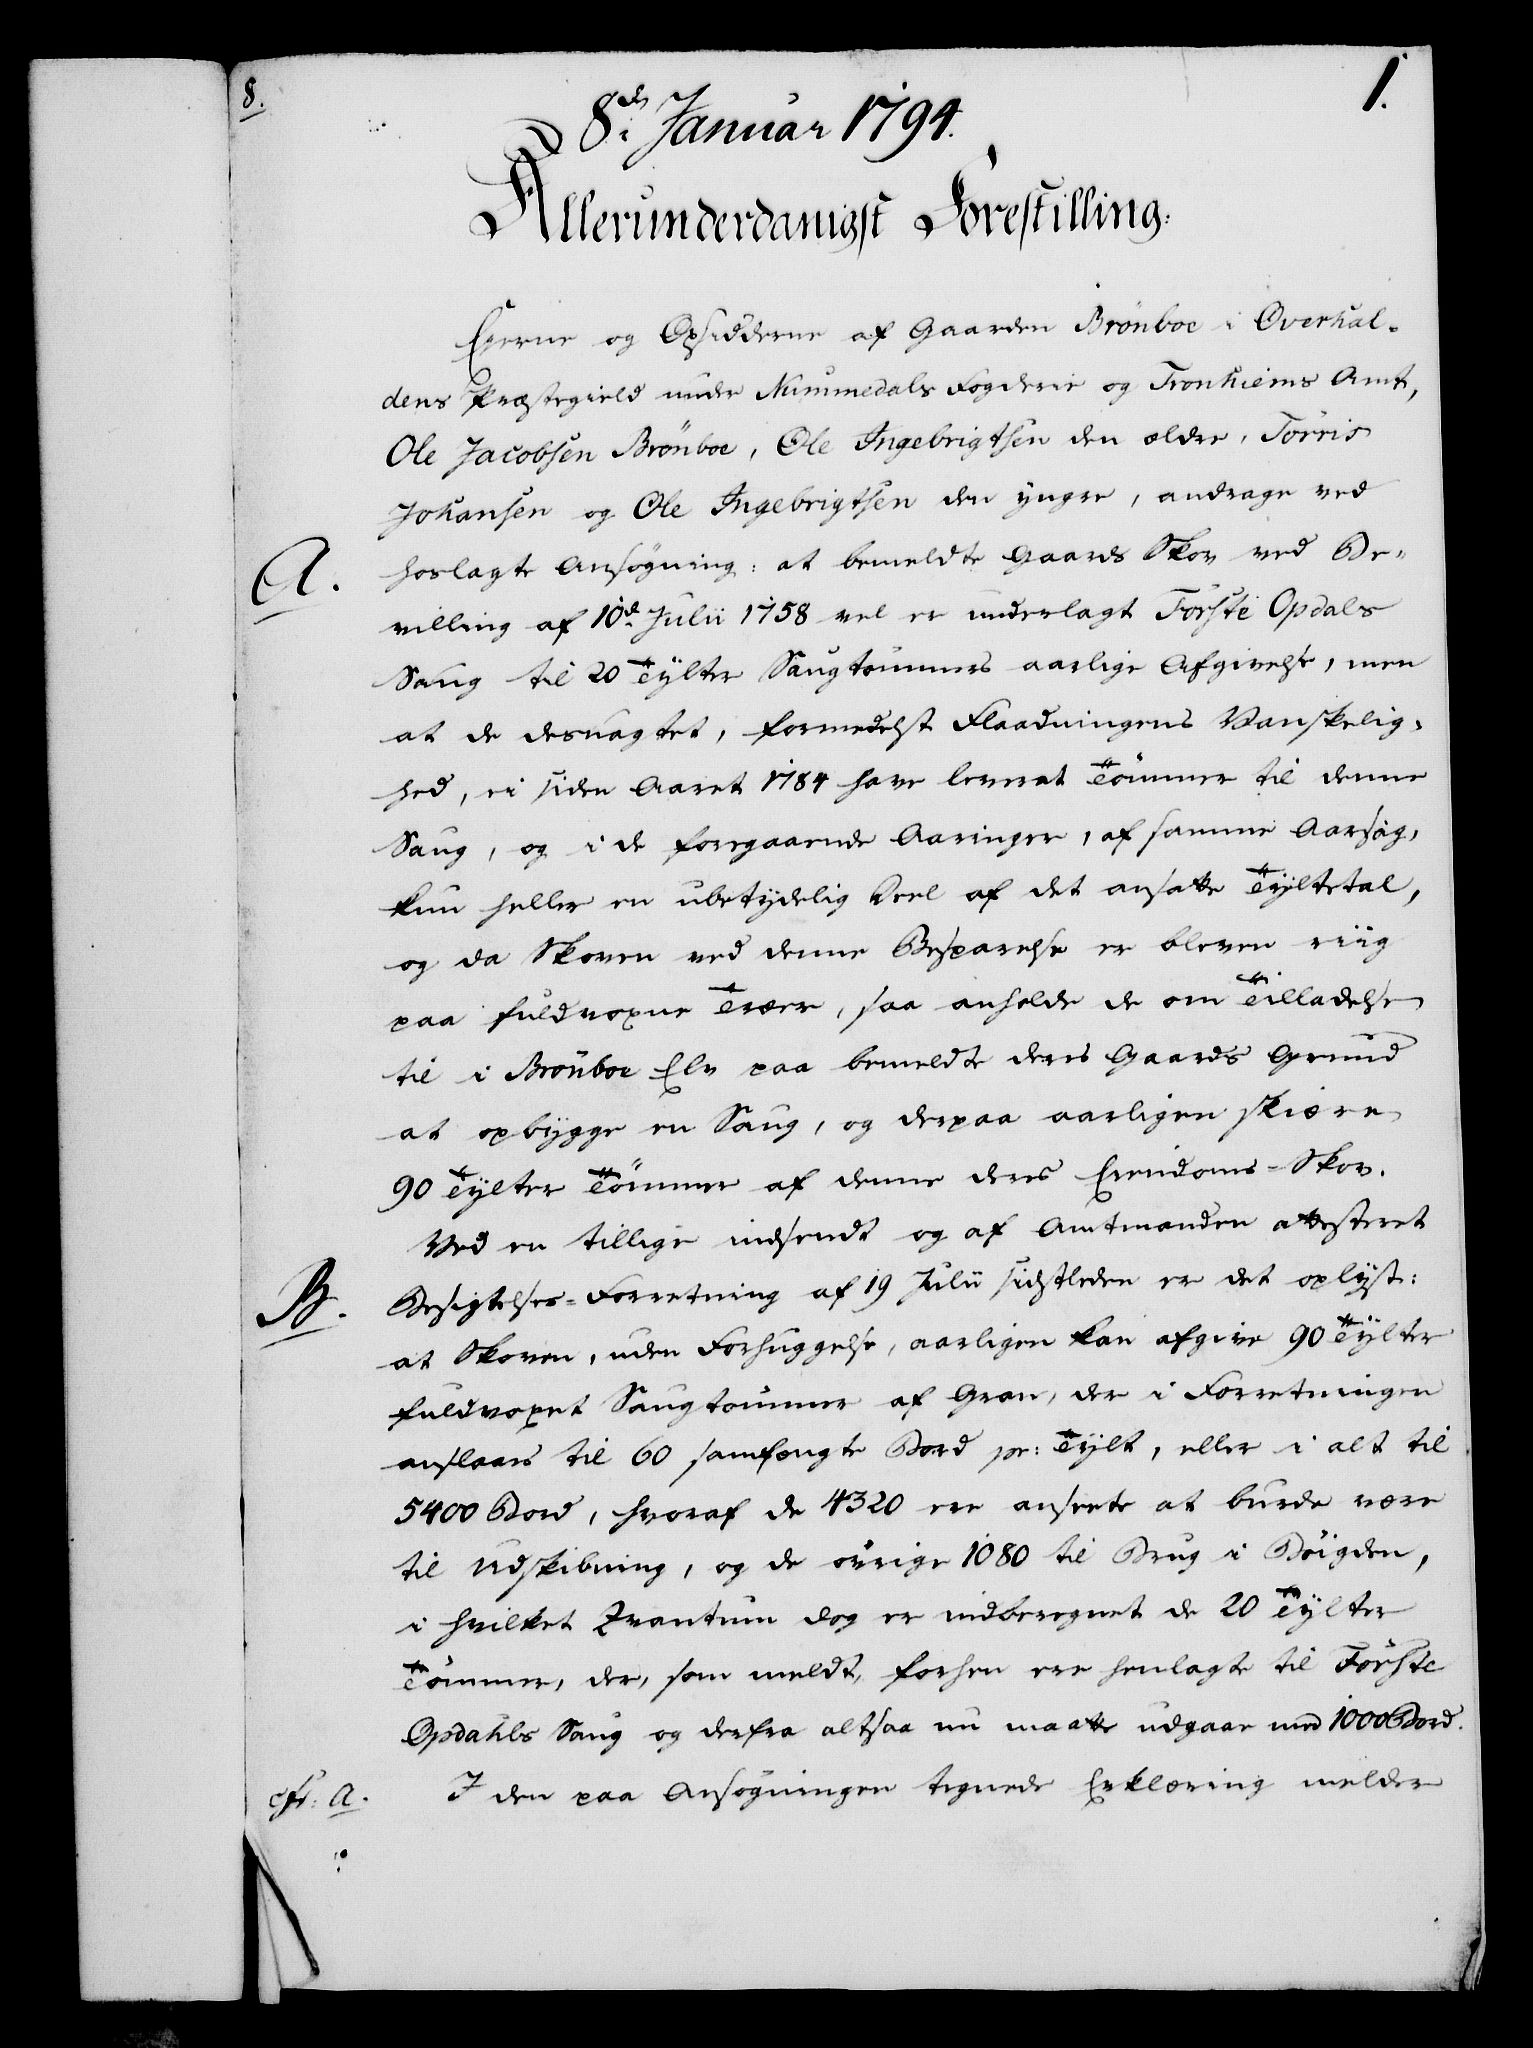 8.
1.
8de Januar 1794.
Allerunderdanigst Forestilling.
Eyerne og Opsidderne af Gaarden Brönboe i Overhal-
dens Præstegield under Nummedals Fogderie og Tronhiems Amt,
Ole Jacobsen Brönboe, Ole Ingebrigtsen den ældre, Torris
Johansen og Ole Ingebrigtsen den yngre, andrage ved
A. hoslagte Ansögning: at bemeldte Gaards Skov ved Be-
villing af 10de Julii 1758 vel er underlagt Förste Opdals
Saug til 20 Tylter Saugtömmers aarlige Afgivelse, men
at de desuagtet, formedelst Flaadningens Vanskelig-
hed, ei siden Aaret 1784 have leveret Tömmer til denne
Saug, og i de foregaaende Aaringer, af samme Aarsag,
kun heller en ubetydelig Deel af det ansatte Tyltetal,
og da Skoven ved denne Besparelse er bleven riig
paa fuldvoxne Træer, saa anholde de om Tilladelse
til i Brönboe Elv paa bemeldte deres Gaards Grund
at opbygge en Saug, og derpaa aarligen skiære
90 Tylter Tömmer af denne deres Eiendoms-Skov.
Ved en tillige indsendt og af Amtmanden attesteret
B. Besigtelses-Forretning af 19 Julii sidstleden er det oplyst:
at Skoven, uden Forhuggelse, aarligen kan afgive 90 Tylter
fuldvoxet Saugtömmer af Gran, der i Forretningen
anslaaes til 60 samfængte Bord pr: Tylt, eller i alt til
5400 Bord, hvoraf de 4320 ere ansete at burde være
til Udskibning, og de övrige 1080 til Brug i Böigden,
i hvilket Qvantum dog er indberegnet de 20 Tylter
Tömmer, der, som meldt, forhen ere henlagte til Förste
Opdahls Saug og derfra altsaa nu maatte udgaae med 1000 Bord.
cfr: A. I den paa Ansögningen tegnede Erklæring melder